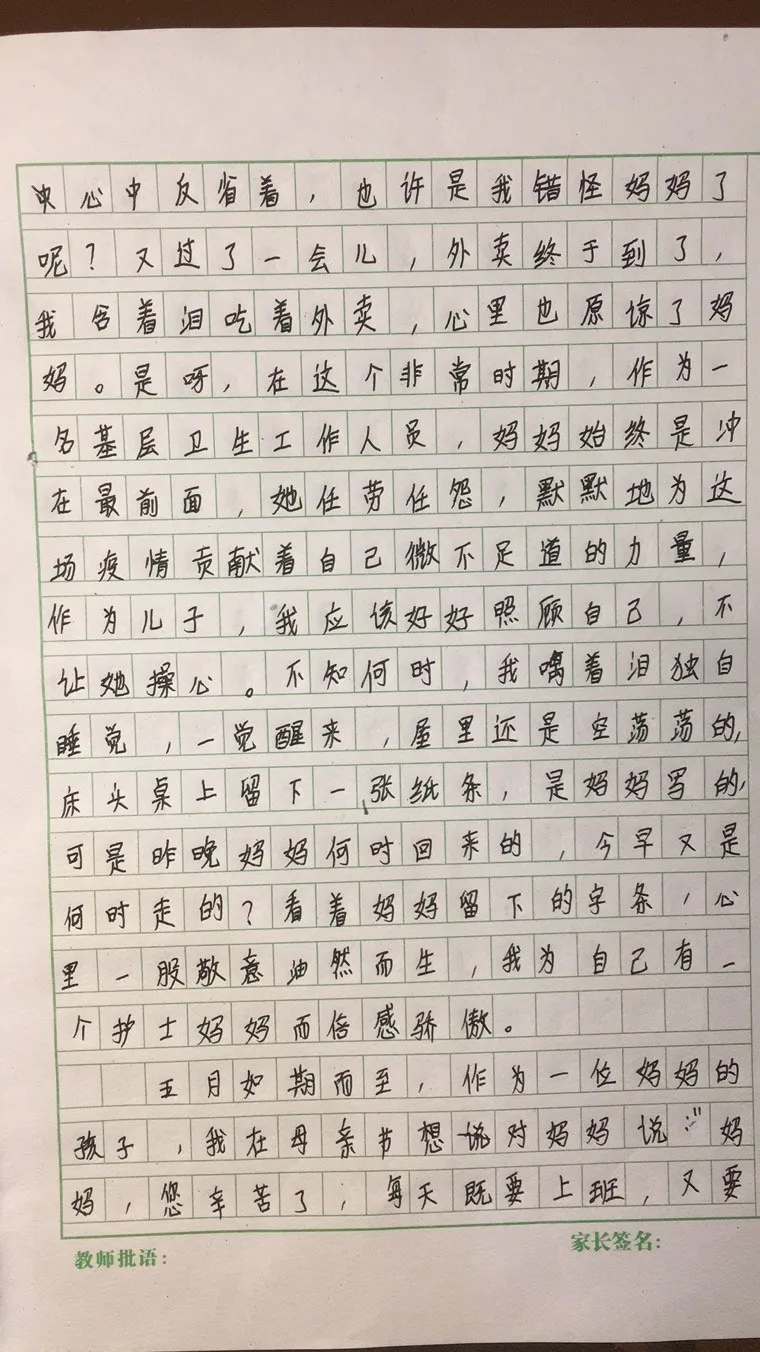 心中反省着，也许是我错怪妈妈了
呢？又过了一会儿，外卖终于到了，
我含着泪吃着外卖，心里也原惊了妈
妈。是呀，在这个非常时期，作为一
名基层卫生工作人员，妈妈始终是冲
在最前面，她任劳任怨，默默地为这
场疫情贡献着自己微不足道的力量，
作为儿子，我应该好好照顾自己，不
让她操心。不知何时，我噙着泪独自
睡觉，一觉醒来，屋里还是空荡荡的，
床头桌上留下一张纸条，是妈妈写的，
可是昨晚妈妈何时回来的，今早又是
何时走的？看着妈妈留下的字条，心
里一股敬意油然而生，我为自己有一
个护士妈妈而倍感骄傲。
五月如期而至，作为一位妈妈的
孩子，我在母亲节想说对妈妈说：“妈
妈，您辛苦了，每天既要上班，又要
教师批语：
家长签名：